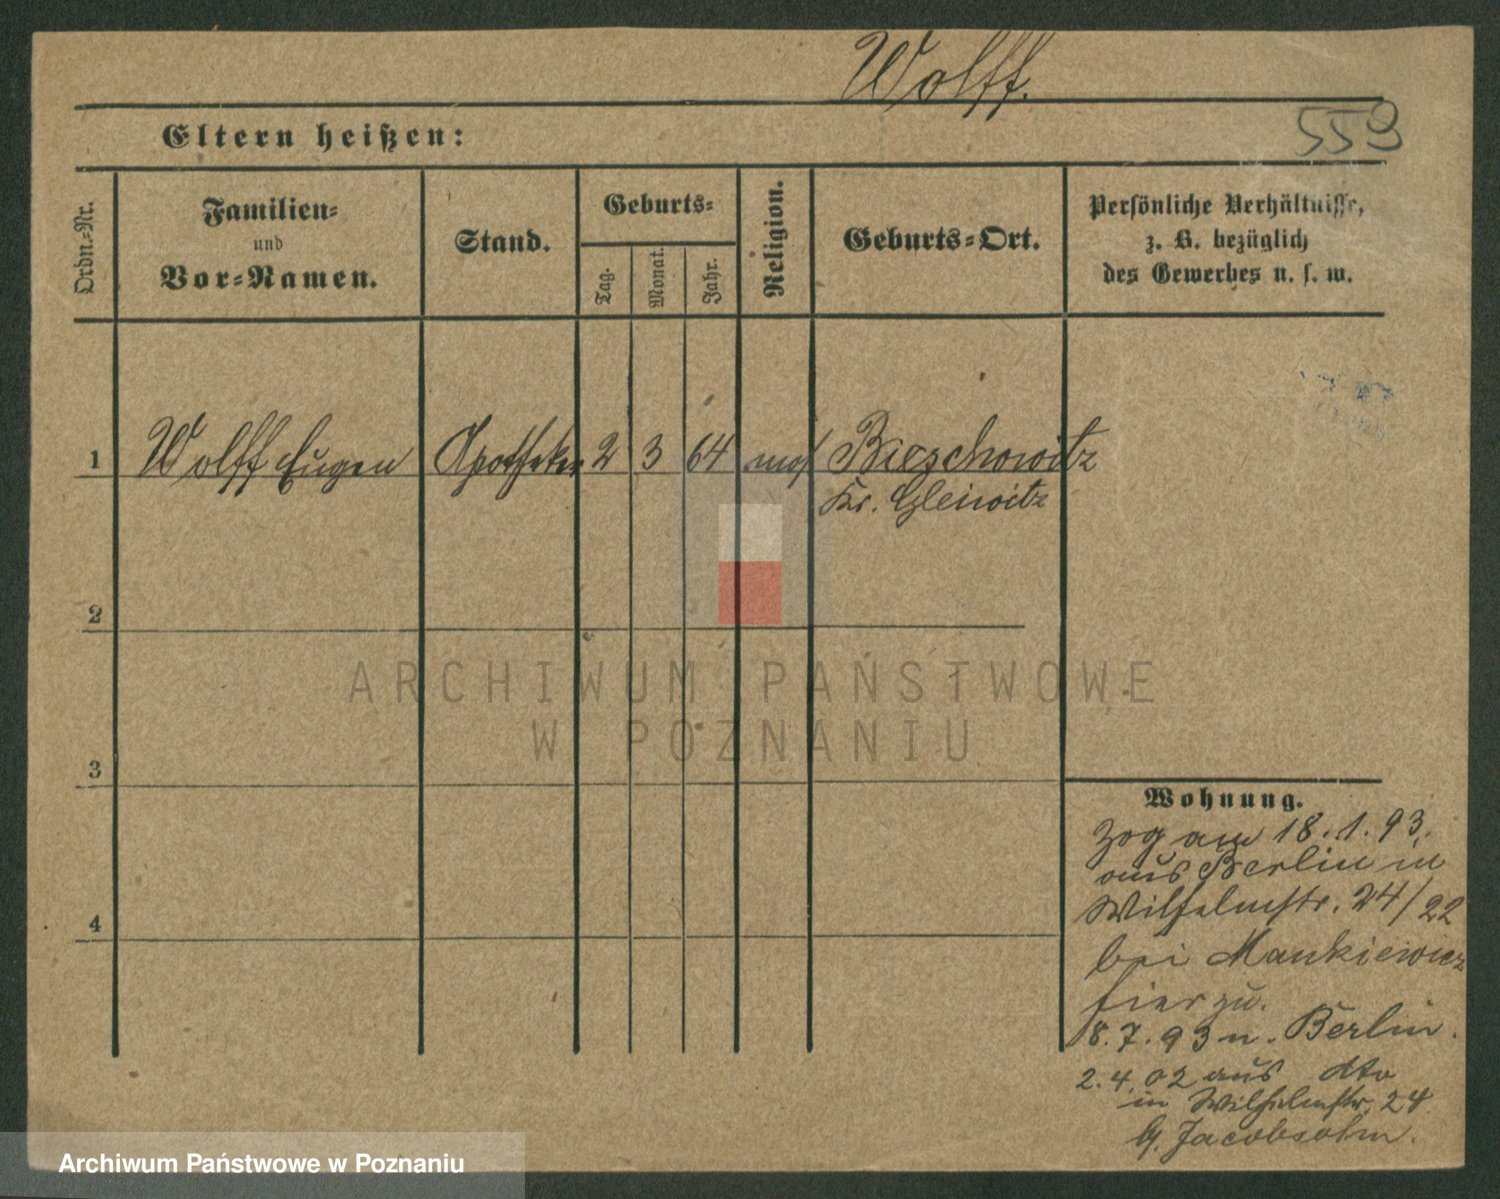 Wolff.
559
Eltern heißen:
Ordn.-Nr.
Familien-
und
Vor-Namen.
Stand.
Geburts-
Tag.
Monat.
Jahr.
Religion.
Geburts-Ort.
Persönliche Verhältnisse,
z. B. bezüglich
des Gewerbes u. s. w.
1 Wolff Eugen Apotheker 2 3 64 mos Biezchowitz
Kr. Gleiwitz
2
3
4
Wohnung.
Zog am 18.1.93.
aus Berlin in
Wilhelmstr. 24/22
bei Mankiewicz
hier zu.
8.7.93 n. Berlin.
2.4.02 aus dto
in Wilhelmstr. 24
b. Jacobsohn.
ARCHIWUM PAŃSTWOWE
W POZNANIU
Archiwum Państwowe w Poznaniu